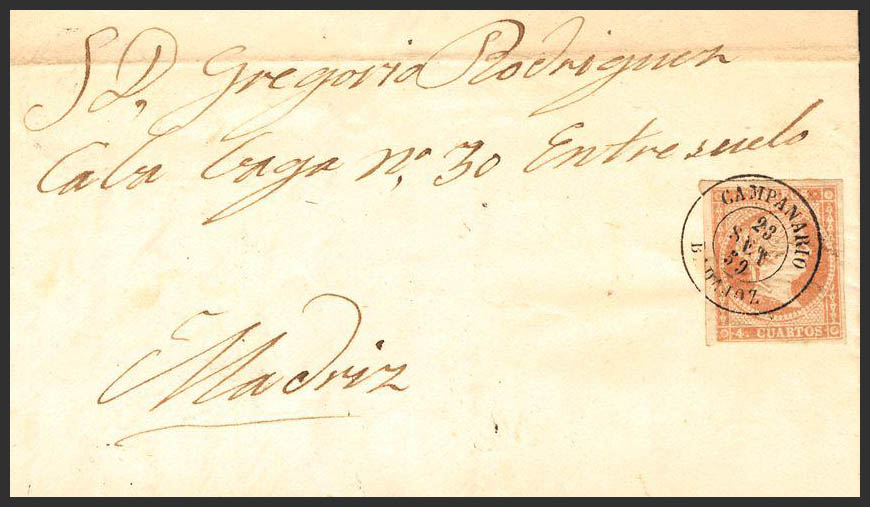 S D. Gregorio Rodriguez
Caba baga nº 30 Entresuelo
Madriz
CAMPANARIO
23
SET
59
BADAJOZ
4. CUARTOS